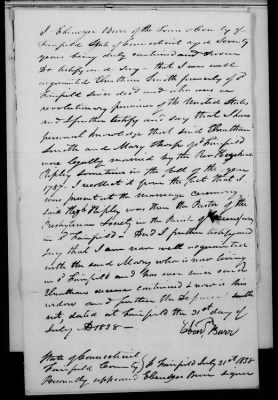 I Ebenezer Burr of the Town & County of
Fairfield State of Connecticut aged Seventy
years being duly cautioned and sworn
Do testify and say that I was well
acquainted Elnathan Smith formerly of sd
Fairfield since decd and who was a
revolutionary pensioner of the United States
and I further testify and say that I have
personal knowledge that said Elnathan
Smith and Mary Sharp of sd Fairfield
were legally married by the Rev Hezekiah
Ripley sometime in the fall of the year
1787. I recollect it from the fact that I
was present at the marriage ceremony
said Hezh Ripley was then the Pastor of the
Presbyterian Society in the Parish of
in sd Fairfield & And I further testify and
say that I am now well acquainted
with the said Mary who is now living
in sd Fairfield and has ever since said
Elnathans decease continued & now is his
widow and further the Deponent saith
not, dated at Fairfield the 21st day of
July AD 1838 —
Ebenr Burr
State of Connecticut
Fairfield County } ss Fairfield July 21st 1838
Personally appeared Ebenezer Burr signer